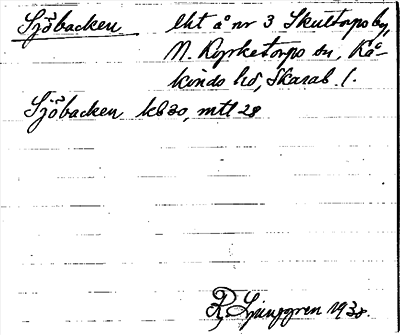 Sjöbacken lht å nr 3 Skuttorps by,
N. Kyrketorps sn, Kå-
kinds hd, Skarab. l.
Sjöbacken kb 30, mtl 28
R. Ljunggren 1938